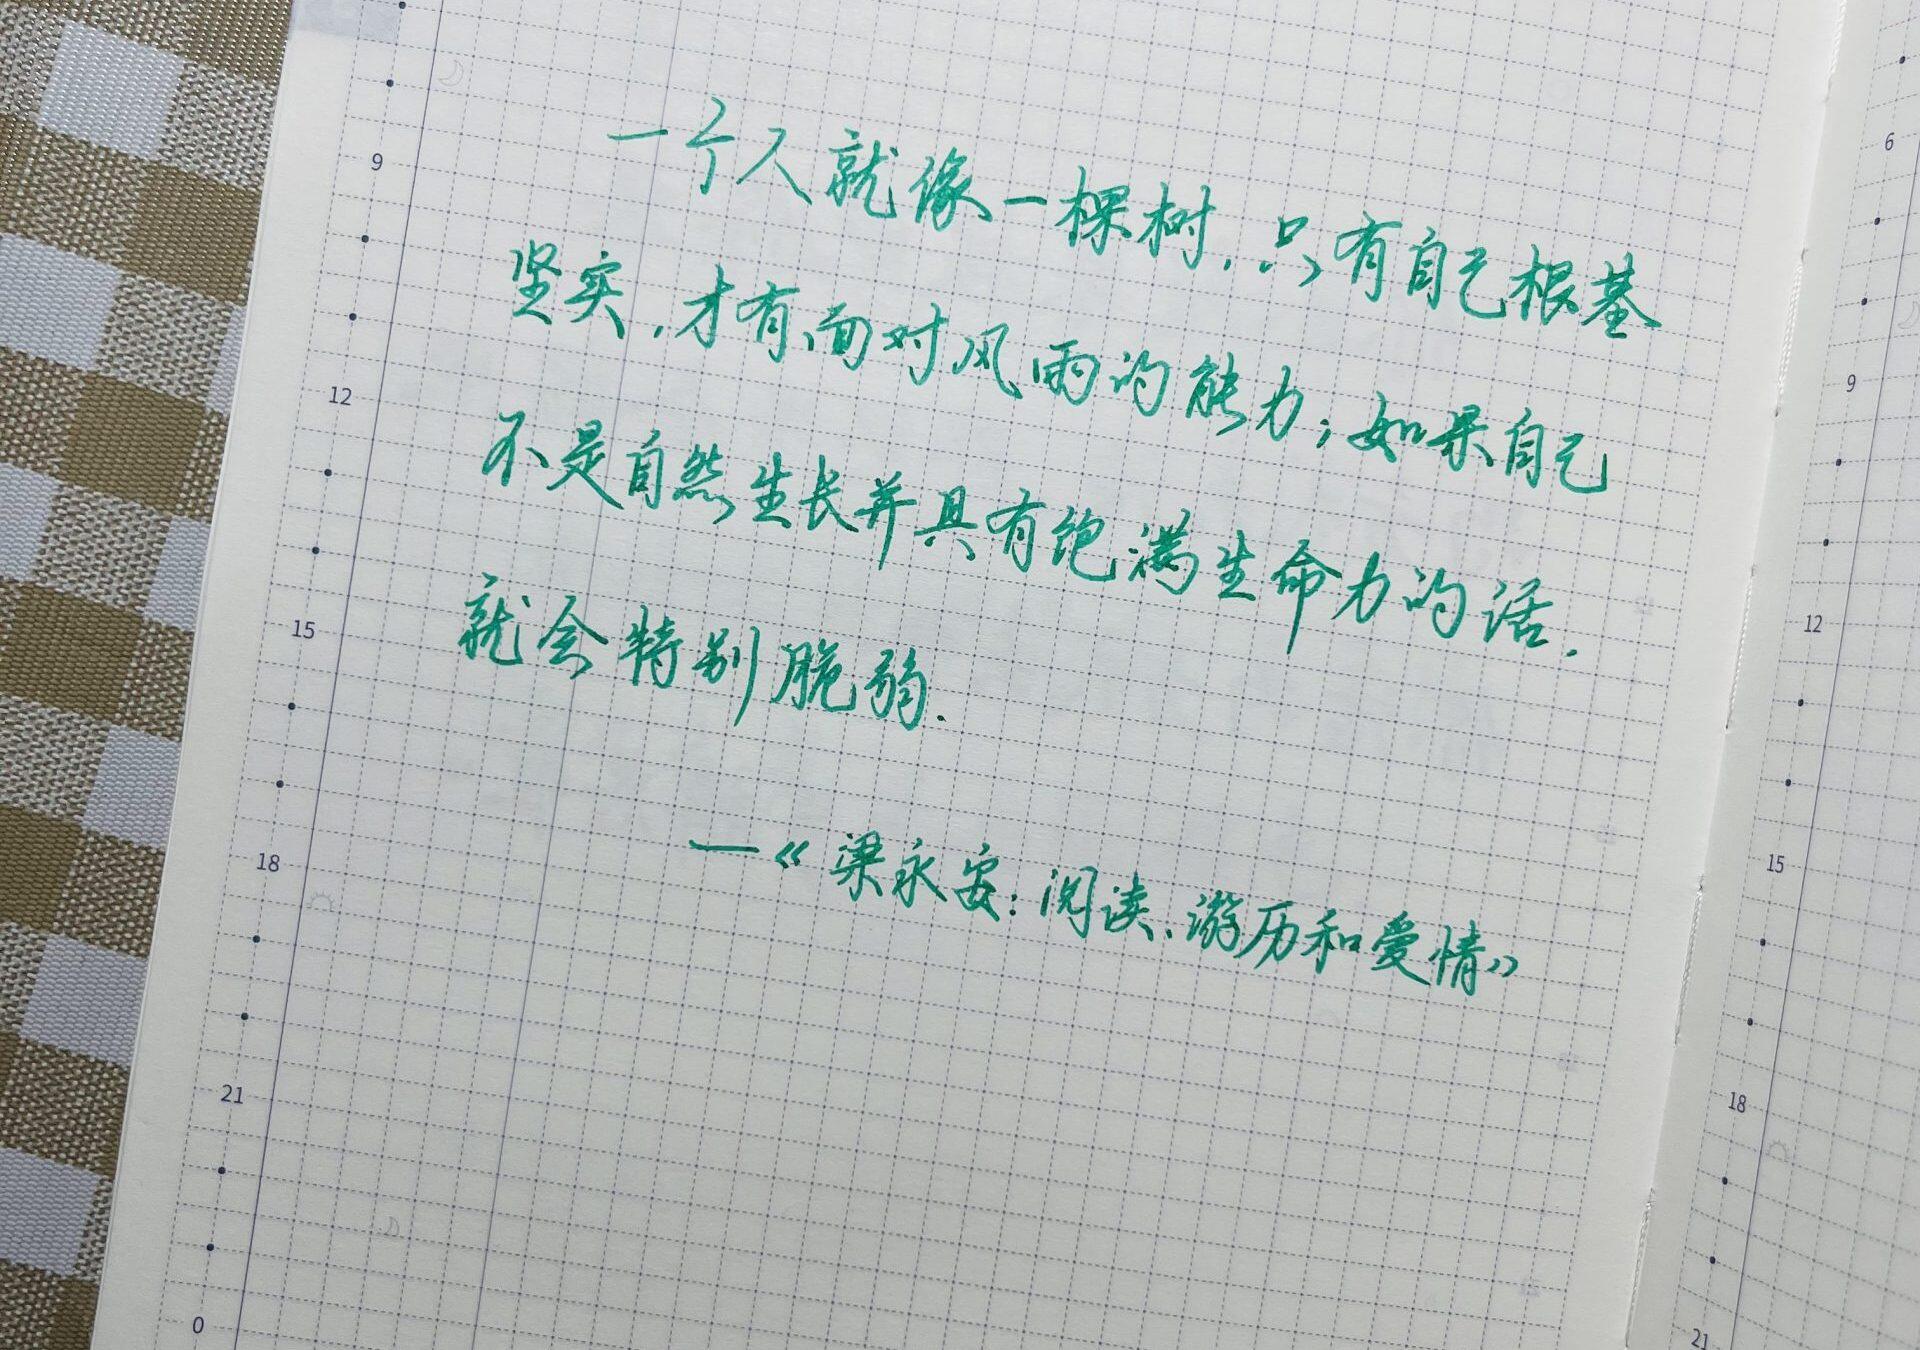 一个人就像一棵树,只有自己根基
坚实,才有面对风雨的能力;如果自己
不是自然生长并具有饱满生命力的话,
就会特别脆弱.
—《梁永安:阅读、游历和爱情》
9
12
15
18
21
0
6
9
12
15
18
21